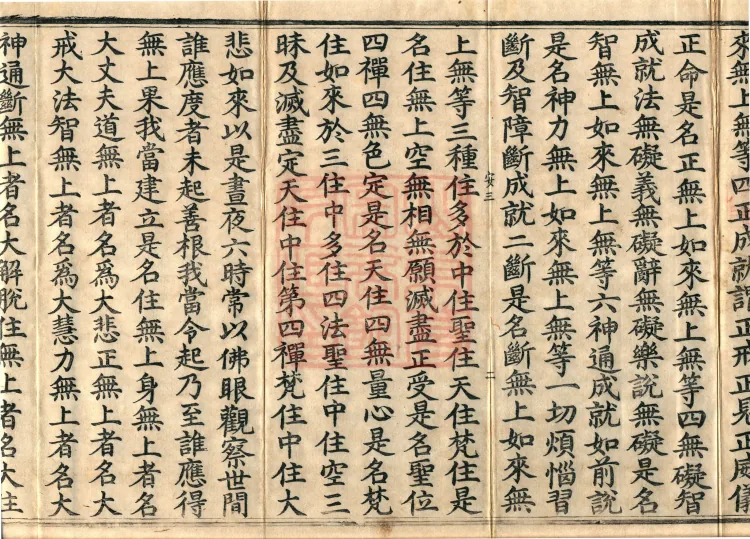 來無上無等四正成就謂正戒正見正威儀
正命是名正無上如來無上無等四無礙智
成就法無礙義無礙辭無礙樂說無礙是名
智無上如來無上無等六神通成就如前說
是名神力無上如來無上無等一切煩惱習
斷及智障斷成就二斷是名斷無上如來無
安三 二
上無等三種住多於中住聖住天住梵住是
名住無上空無相無願滅盡正受是名聖位
四禪四無色定是名天住四無量心是名梵
住如來於三住中多住四法聖住中住空三
昧及滅盡定天住中住第四禪梵住中住大
悲如來以是晝夜六時常以佛眼觀察世間
誰應度者未起善根我當令起乃至誰應得
無上果我當建立是名住無上身無上者名
大丈夫道無上者名爲大悲正無上者名大
戒大法智無上者名爲大慧力無上者名大
神通斷無上者名大解脫住無上者名大住